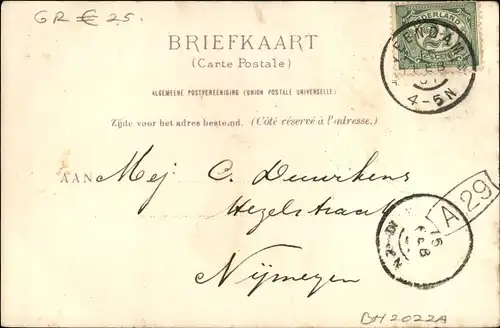 GR € 25.
BRIEFKAART
(Carte Postale)
ALGEMEENE POSTVEREENIGING (UNION POSTALE UNIVERSELLE)
Zijde voor het adres bestemd. (Côté réservé à l'adresse.)
NEDERLAND
VEENDAM
FEB
01
4-5N
AAN Mej C. Duurkens
Hezelstraat
Nijmegen
FEB
A 29
BH2022A